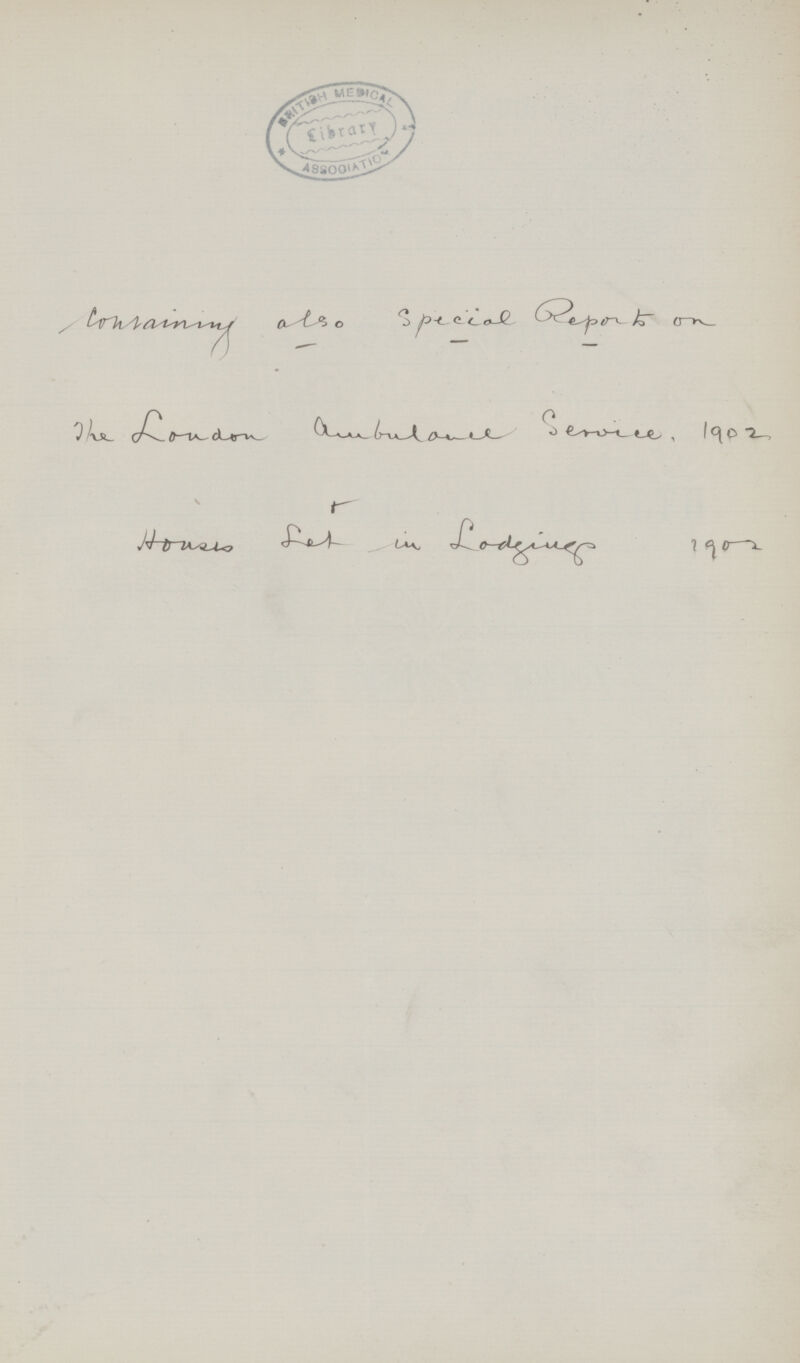 BRITISH MEDICAL
Library
ASSOCIATION
Containing also Special Reports on
The London Ambulance Service. 1902
+
Houses Let in Lodgings 1902